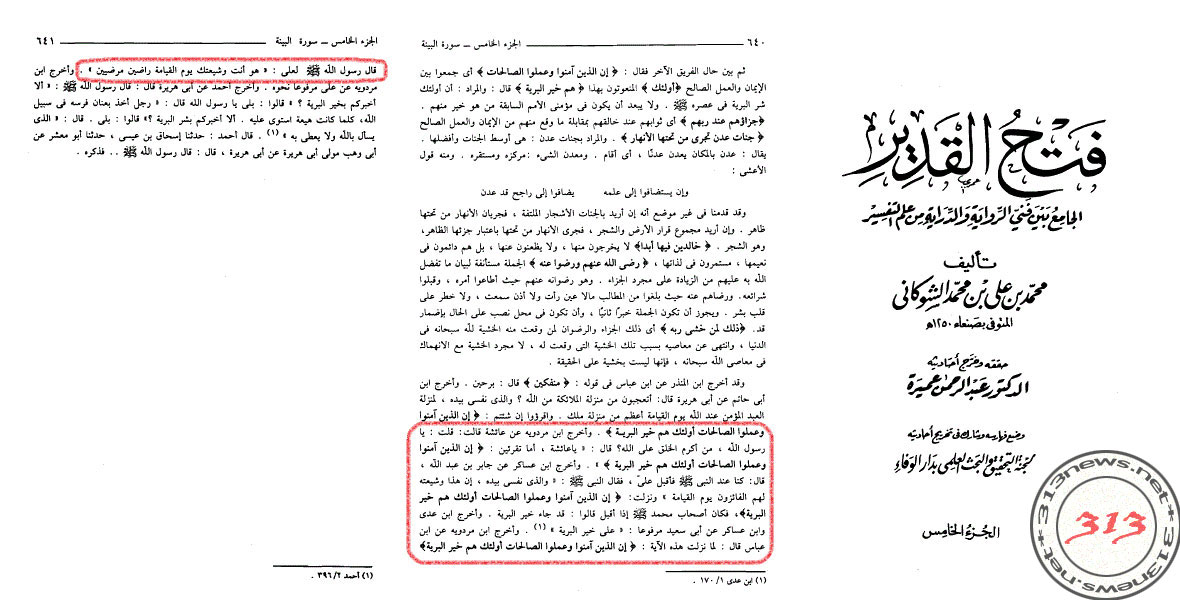 فَتْحُ القَدِيرِ
الجامع بين فني الرواية والدراية من علم التفسير
تأليف
محمد بن علي بن محمد الشوكاني
المتوفى بصنعاء ١٢٥٠هـ
حققه وخرج أحاديثه
الدكتور عبد الرحمن عميرة
وضع فهارسه وشارك في تخريج أحاديثه
لجنة التحقيق والبحث العلمي بدار الوفاء
الجزء الخامس
313news.net
313
313news.net
٦٤٠ ـــ الجزء الخامس ــ سورة البينة
ثم بين حال الفريق الآخر فقال : ﴿ إن الذين آمنوا وعملوا الصالحات ﴾ أى جمعوا بين
الإيمان والعمل الصالح ﴿أولئك ﴾ المنعوتون بهذا ﴿ هم خير البرية ﴾ قال : والمراد : أن أولئك
شر البرية فى عصره ﷺ . ولا يبعد أن يكون فى مؤمنى الأمم السابقة من هو خير منهم .
﴿جزاؤهم عند ربهم ﴾ أى ثوابهم عند خالقهم بمقابلة ما وقع منهم من الإيمان والعمل الصالح
﴿ جنات عدن تجرى من تحتها الأنهار ﴾ . والمراد بجنات عدن : هى أوسط الجنات وأفضلها .
يقال : عدن بالمكان يعدن عدنًا ، أى أقام . ومعدن الشىء :مركزه ومستقره . ومنه قول
الأعشى :
وإن يستضافوا إلى علمه يضافوا إلى راجح قد عدن
وقد قدمنا فى غير موضع أنه إن أريد بالجنات الأشجار الملتفة ، فجريان الأنهار من تحتها
ظاهر . وإن أريد مجموع قرار الأرض والشجر ، فجرى الأنهار من تحتها باعتبار جزئها الظاهر،
وهو الشجر . ﴿ خالدين فيها أبدا﴾ لا يخرجون منها ، ولا يظعنون عنها ، بل هم دائمون فى
نعيمها ، مستمرون فى لذاتها ، ﴿ رضى الله عنهم ورضوا عنه ﴾ الجملة مستأنفة لبيان ما تفضل
الله به عليهم من الزيادة على مجرد الجزاء . وهو رضوانه عنهم حيث أطاعوا أمره ، وقبلوا
شرائعه. ورضاهم عنه حيث بلغوا من المطالب مالا عين رأت ولا أذن سمعت ، ولا خطر على
قلب بشر . ويجوز أن تكون الجملة خبرًا ثانيًا ، وأن تكون فى محل نصب على الحال بإضمار
قد. ﴿ذلك لمن خشى ربه ﴾ أى ذلك الجزاء والرضوان لمن وقعت منه الخشية لله سبحانه فى
الدنيا ، وانتهى عن معاصيه بسبب تلك الخشية التى وقعت له ، لا مجرد الخشية مع الانهماك
فى معاصى الله سبحانه ، فإنها ليست بخشية على الحقيقة .
وقد أخرج ابن المنذر عن ابن عباس فى قوله : ﴿ منفكين ﴾ قال : برحين . وأخرج ابن
أبى حاتم عن أبى هريرة قال: أتعجبون من منزلة الملائكة من الله ؟ والذى نفسى بيده ، لمنزلة
العبد المؤمن عند الله يوم القيامة أعظم من منزلة ملك . واقرؤوا إن شئتم : ﴿ إن الذين آمنوا
وعملوا الصالحات أولئك هم خير البرية ﴾ . وأخرج ابن مردويه عن عائشة قالت: قلت : يا
رسول الله ، من أكرم الخلق على الله؟ قال : « ياعائشة ، أما تقرئين : ﴿ إن الذين آمنوا
وعملوا الصالحات أولئك هم خير البرية ﴾ » . وأخرج ابن عساكر عن جابر بن عبد الله ،
قال: كنا عند النبى ﷺ فأقبل علىّ ، فقال النبى ﷺ : « والذى نفسى بيده ، إن هذا وشيعته
لهم الفائزون يوم القيامة » ونزلت: ﴿ إن الذين آمنوا وعملوا الصالحات أولئك هم خير
البرية﴾، فكان أصحاب محمد ﷺ إذا أقبل قالوا : قد جاء خير البرية . وأخرج ابن عدى
وابن عساكر عن أبى سعيد مرفوعا : « على خير البرية » (١) . وأخرج ابن مردويه عن ابن
عباس قال : لما نزلت هذه الآية : ﴿ إن الذين آمنوا وعملوا الصالحات أولئك هم خير البرية﴾
(١) ابن عدى ١ / ١٧٠ .
الجزء الخامس ــ سورة البينة ـــ ٦٤١
قال رسول الله ﷺ لعلى : « هو أنت وشيعتك يوم القيامة راضين مرضيين » . وأخرج ابن
مردويه عن على مرفوعا نحوه . وأخرج أحمد عن أبى هريرة قال : قال رسول الله ﷺ : « ألا
أخبركم بخير البرية ؟ » قالوا : بلى يا رسول الله قال : « رجل أخذ بعنان فرسه فى سبيل
الله، كلما كانت هيعة استوى عليه . ألا أخبركم بشر البرية ؟» قالوا : بلى . قال : « الذى
يسأل بالله ولا يعطى به » (١) . قال أحمد : حدثنا إسحاق بن عيسى ، حدثنا أبو معشر عن
أبى وهب مولى أبى هريرة عن أبى هريرة ، قال : قال رسول الله ﷺ .. فذكره .
(١) أحمد ٢ / ٣٩٦ .